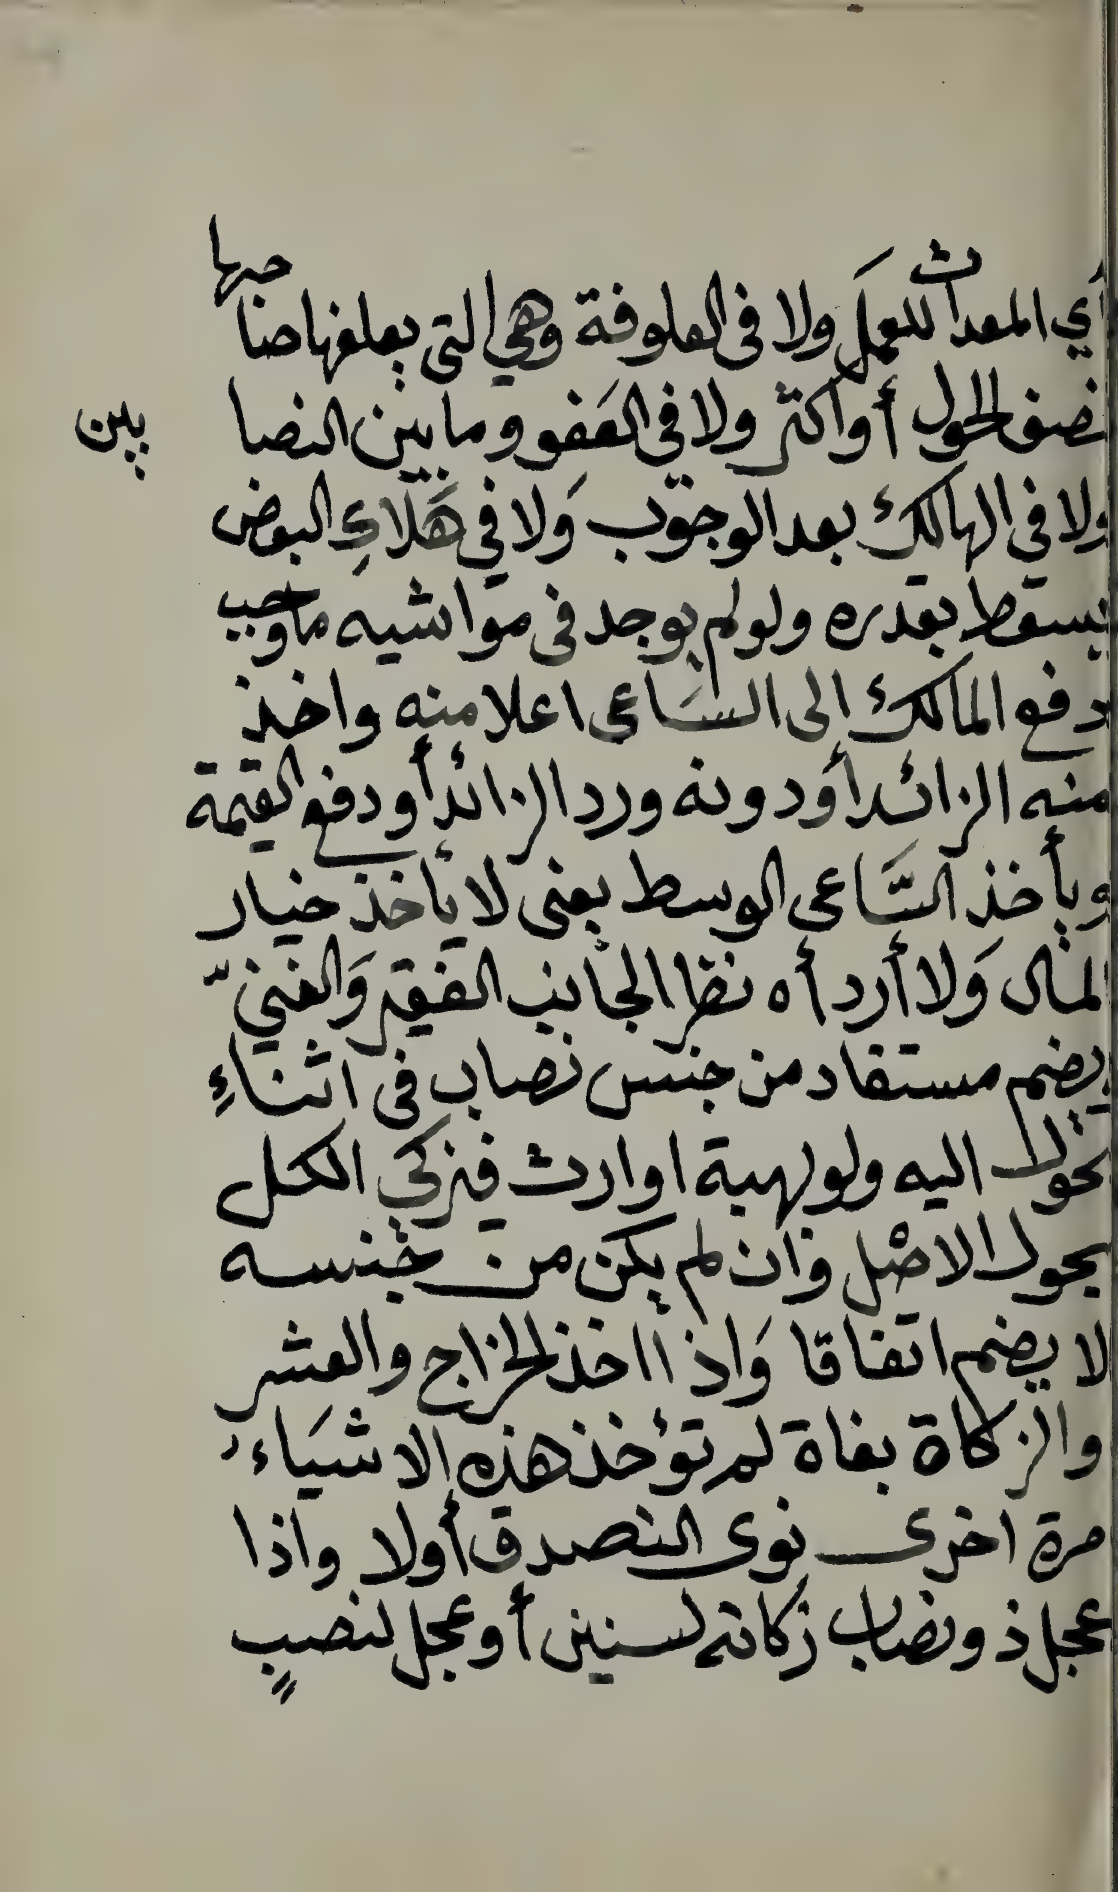 أي المعدات للعمل ولا فى العلوفة وهي التى يعلفها صاحبها
نصف الحول أو اكثر ولا فى العفو وما بين النصابين
ولا فى الهالك بعد الوجوب ولا في هلاك البعض
يسقط بقدره ولو لم يوجد فى مواشيه ما وجب
دفع المالك الى الساعى اعلا منه واخذ
منه الزائد أو دونه ورد الزائد أو دفع القيمة
ويأخذ السّاعى الوسط يعنى لا يأخذ خيار
المال ولا أردأه نظرا لجانب الفقير والغنيّ
يضم مستفاد من جنس نصاب فى اثناء
حول اليه ولو لهبة او ارث فيزكي الكل
بحول الاصْل وان لم يكن من جنسه
لا يضم اتفاقا وَاذا اخذ الخراج والعشر
والزكاة بغاة لم تؤخذ هذه الاشيَاء
مرة اخرى نوى التصدق أولا واذا
عجل ذو نصاب زكاته لسنين أو عجل لنصبٍ